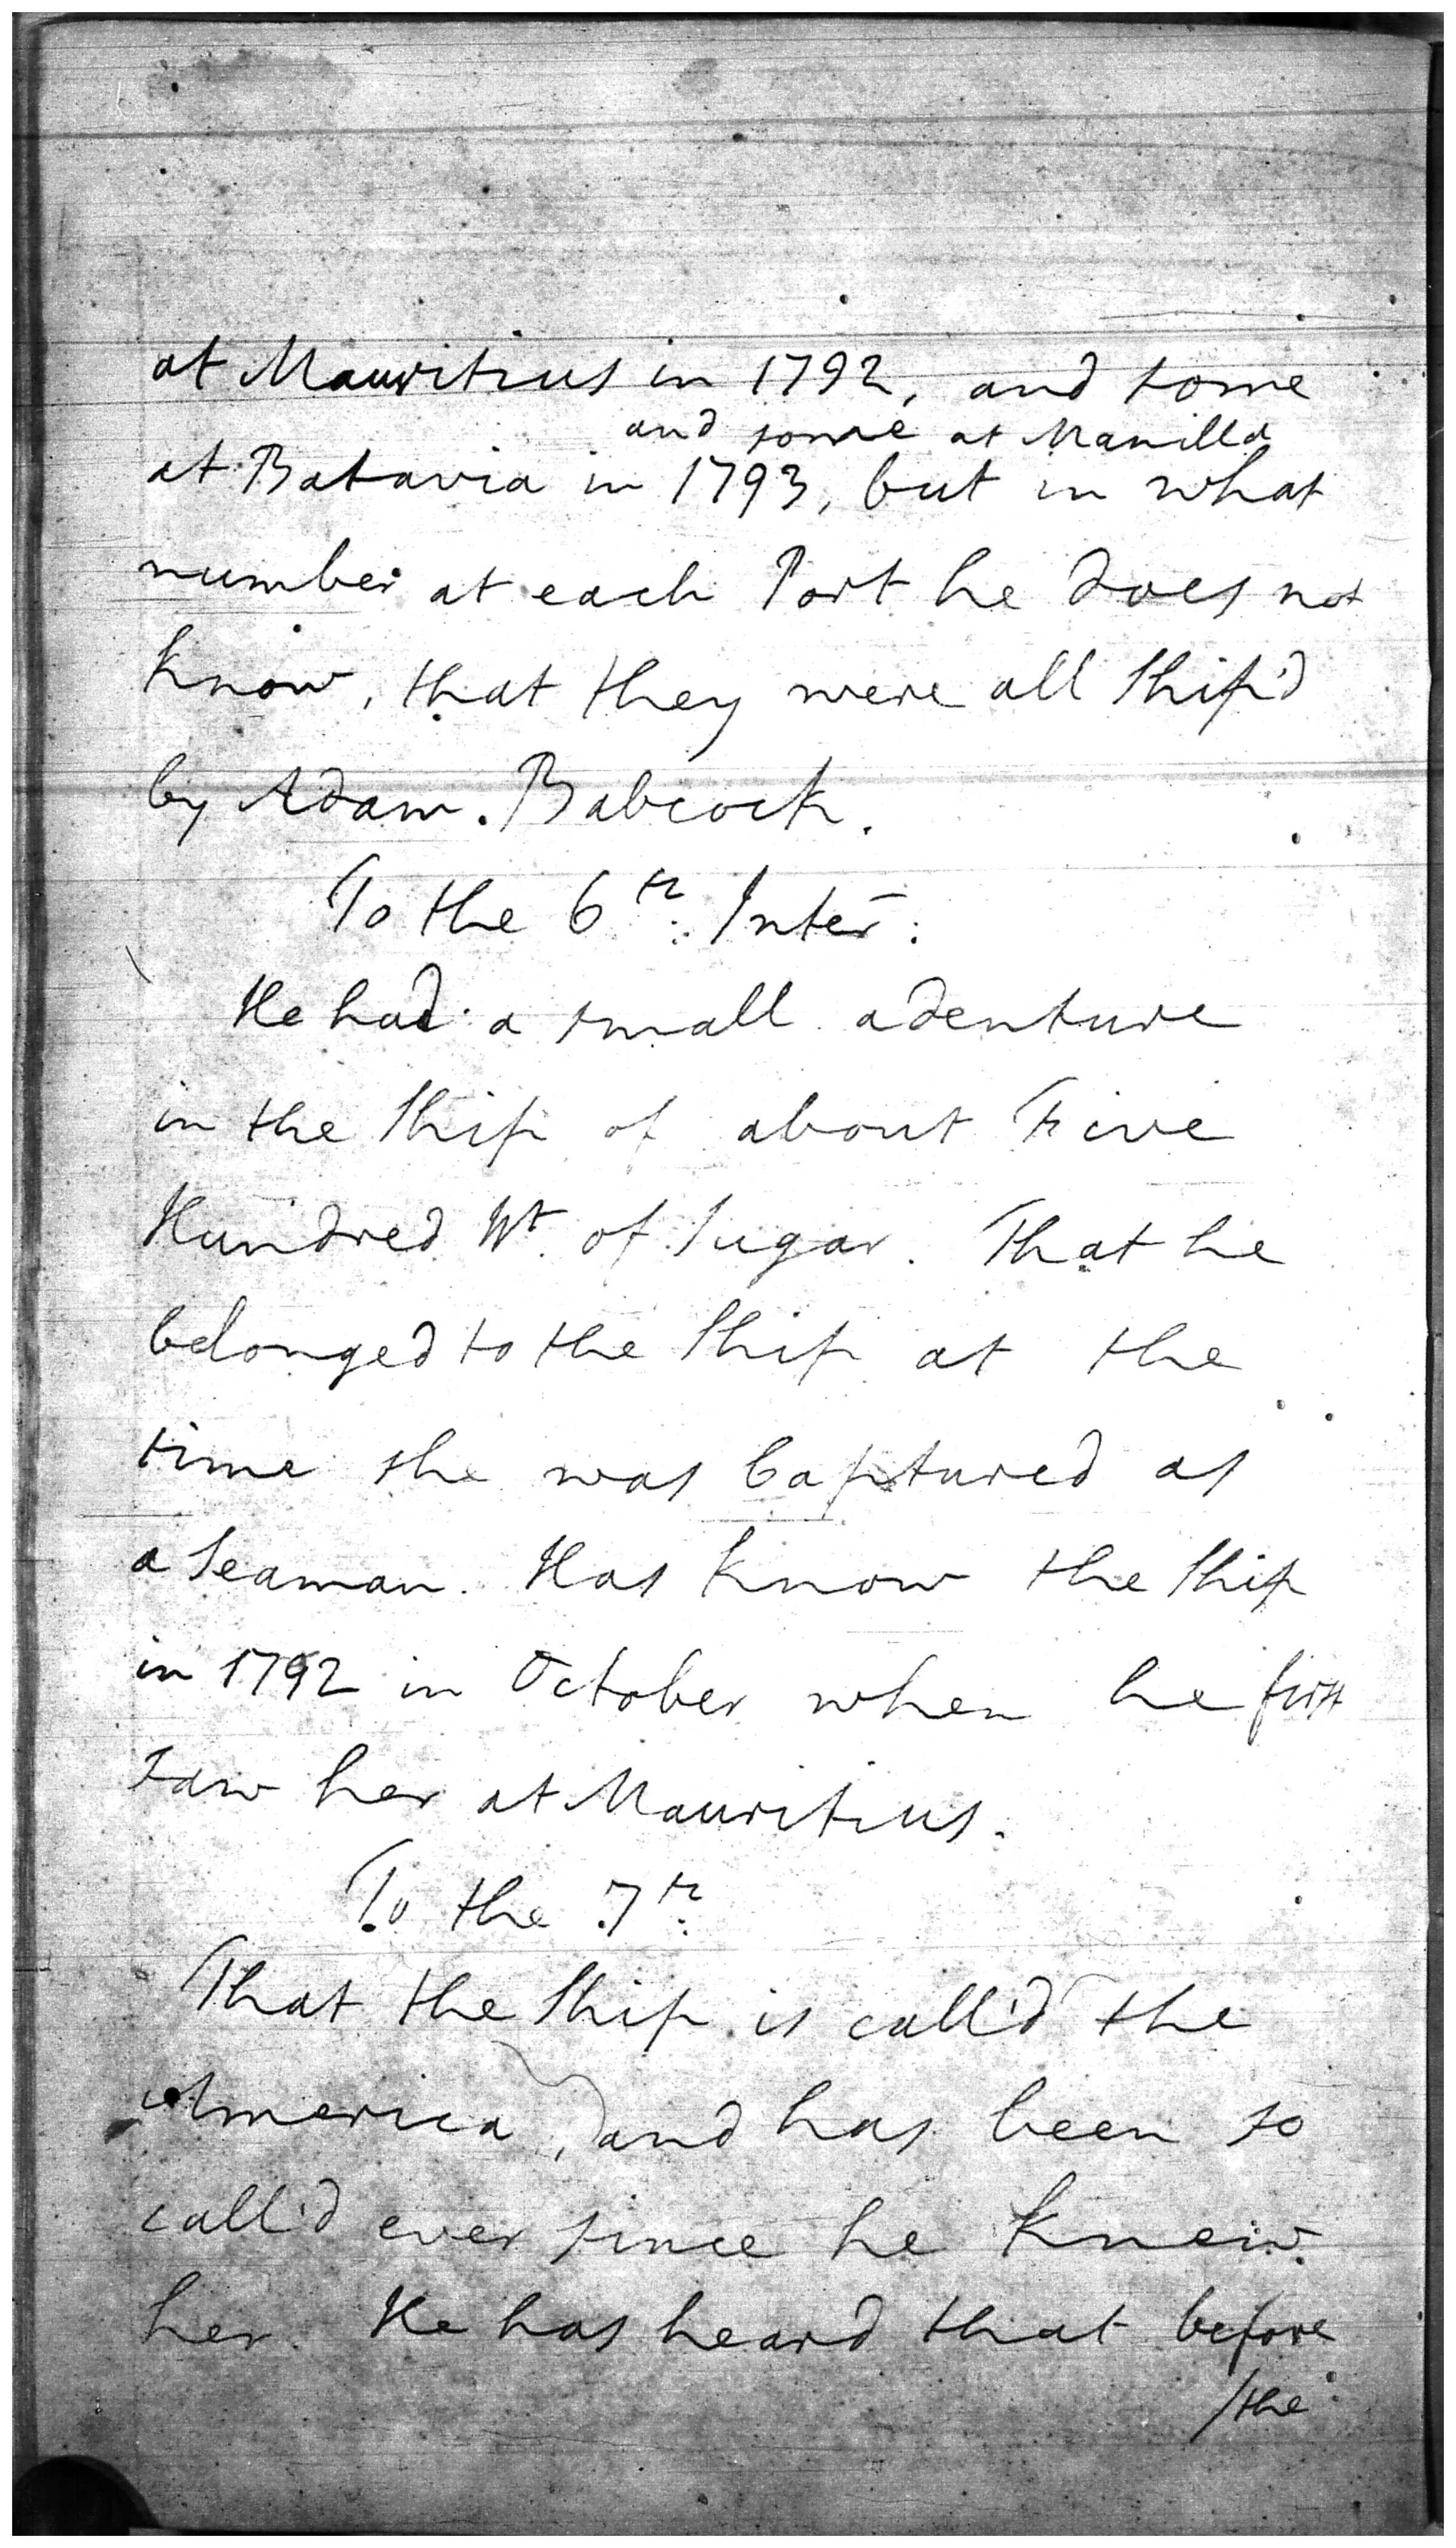 at Mauritius in 1792, and some
and some at Manilla
at Batavia in 1793, but in what
number at each Port he does not
know, that they were all Ship'd
by Adam Babcock.
To the 6th: Inter:
He had a small adenture
in the Ship of about Five
Hundred Wt. of Sugar. That he
belonged to the Ship at the
time she was Captured as
a Seaman. Has know the Ship
in 1792 in October when he first
saw her at Mauritius.
To the 7th
That the Ship is call'd the
America, and has been so
call'd ever since he knew
her. He has heard that before
/the